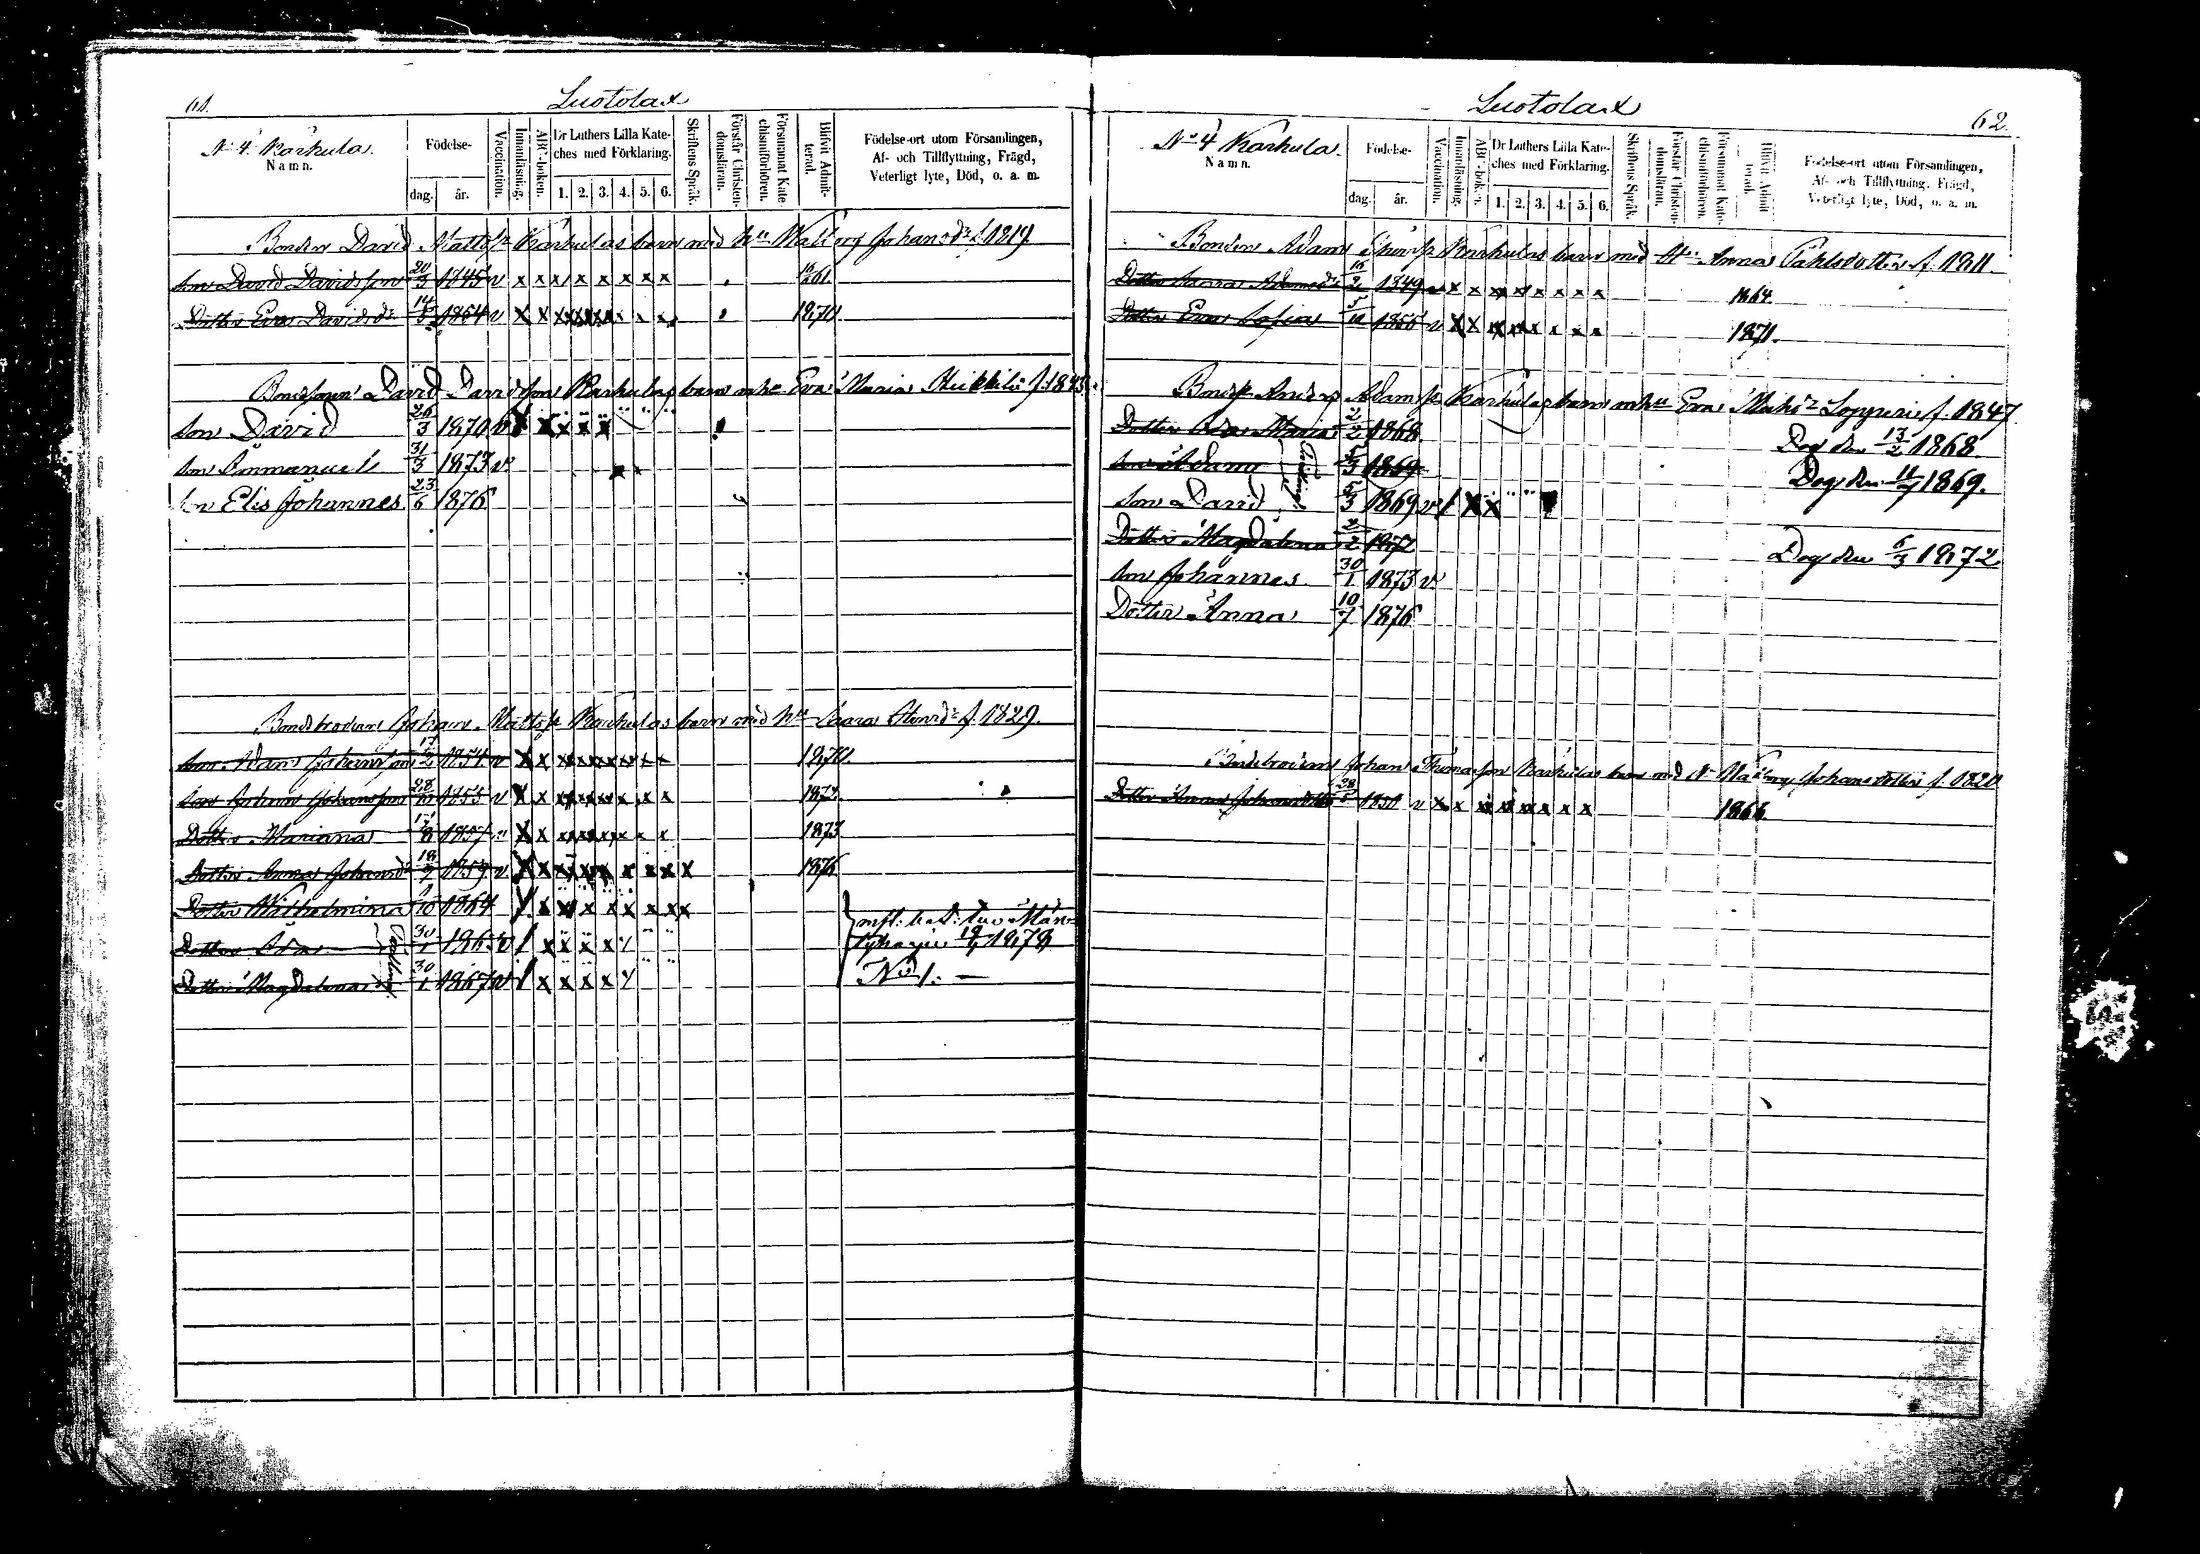 61.
Luotolax
N:o 4. Karhula.
Namn.
Födelse-
dag.
år.
Vaccination.
Innanläsning.
ABC-boken.
Dr Luthers Lilla Kate-
ches med Förklaring.
1. 2. 3. 4. 5. 6.
Skriftens Språk.
Förstår Christen-
domsläran.
Försummat Kate-
chismiförhören.
Blifvit Admit-
terad.
Födelse-ort utom Församlingen,
Af- och Tillflyttning, Frägd,
Veterligt lyte, Död, o. a. m.
Bonden David Mattss: Karhulas barn med h:u Walborg Johansd:r f. 1819.
Son David Davidsson 20/3 1845 v x x x x x x x x
Dotter Eva Davidsd:r 14/5 1854 v x x x x x x x x 1870
Bondsonen David Davidson Karhulas barn m h:u Eva Maria Heikkilä f. 1843.
Son David 26/3 1870 v
Son Immanuel 31/3 1873 v
Son Elis Johannes 23/6 1876
Bondbrodern Johan Mattss: Karhulas barn med h:u Maria Henrd:r f. 1829.
Son Adam Johansson 1854 v x x x x x x x x 1870.
Son Johan Johansson 28 1855 v x x x x x x x x 1872.
Dotter Mariana 17/8 1857 v x x x x x x x x 1873
Dotter Anna Johansd:r 18/9 1859 v x x x x x x x x x 1876
Dotter Wilhelmina /10 1864
Dotter Eva 30/1 1867 v
Dotter Magdalena 30/1 1867 v
Tvillingar
1878
N:o 1.
62.
Luotolax
N:o 4 Karhula.
Namn.
Födelse-
dag.
år.
Vaccination.
Innanläsning.
ABC-boken.
Dr Luthers Lilla Kate-
ches med Förklaring.
1. 2. 3. 4. 5. 6.
Skriftens Språk.
Förstår Christen-
domsläran.
Försummat Kate-
chismiförhören.
Blifvit Admit-
terad.
Födelse-ort utom Församlingen,
Af- och Tillflyttning, Frägd,
Veterligt lyte, Död, o. a. m.
Bonden Adam Karhulas barn med H:u Anna Påhlsdotter f. 1811.
Dotter Anna Adamsd:r 16/2 1849 v x x x x x x x x 1864.
Dotter Eva Sofia 5/10 1855 v x x x x x x x x 1871.
Bonds: Anders Adamss: Karhulas barn m h:u Eva Math:dr f. 1847.
Dotter Eva Maria 2/2 1868 Dog den 13/2 1868.
Son Adam 5/3 1869 Dog den 11/7 1869.
Tvillingar
Son David 5/3 1869 v
Dotter Magdalena 2/2 1872 Dog den 6/3 1872.
Son Johannes 30/1 1873 v
Dotter Anna 10/7 1876
Bondebrodern Johan Thomasson Karhulas barn med h: Walborg Johansdotter f. 1820
Dotter Anna Johansdotter 28/5 1851 v x x x x x x x x 1866.